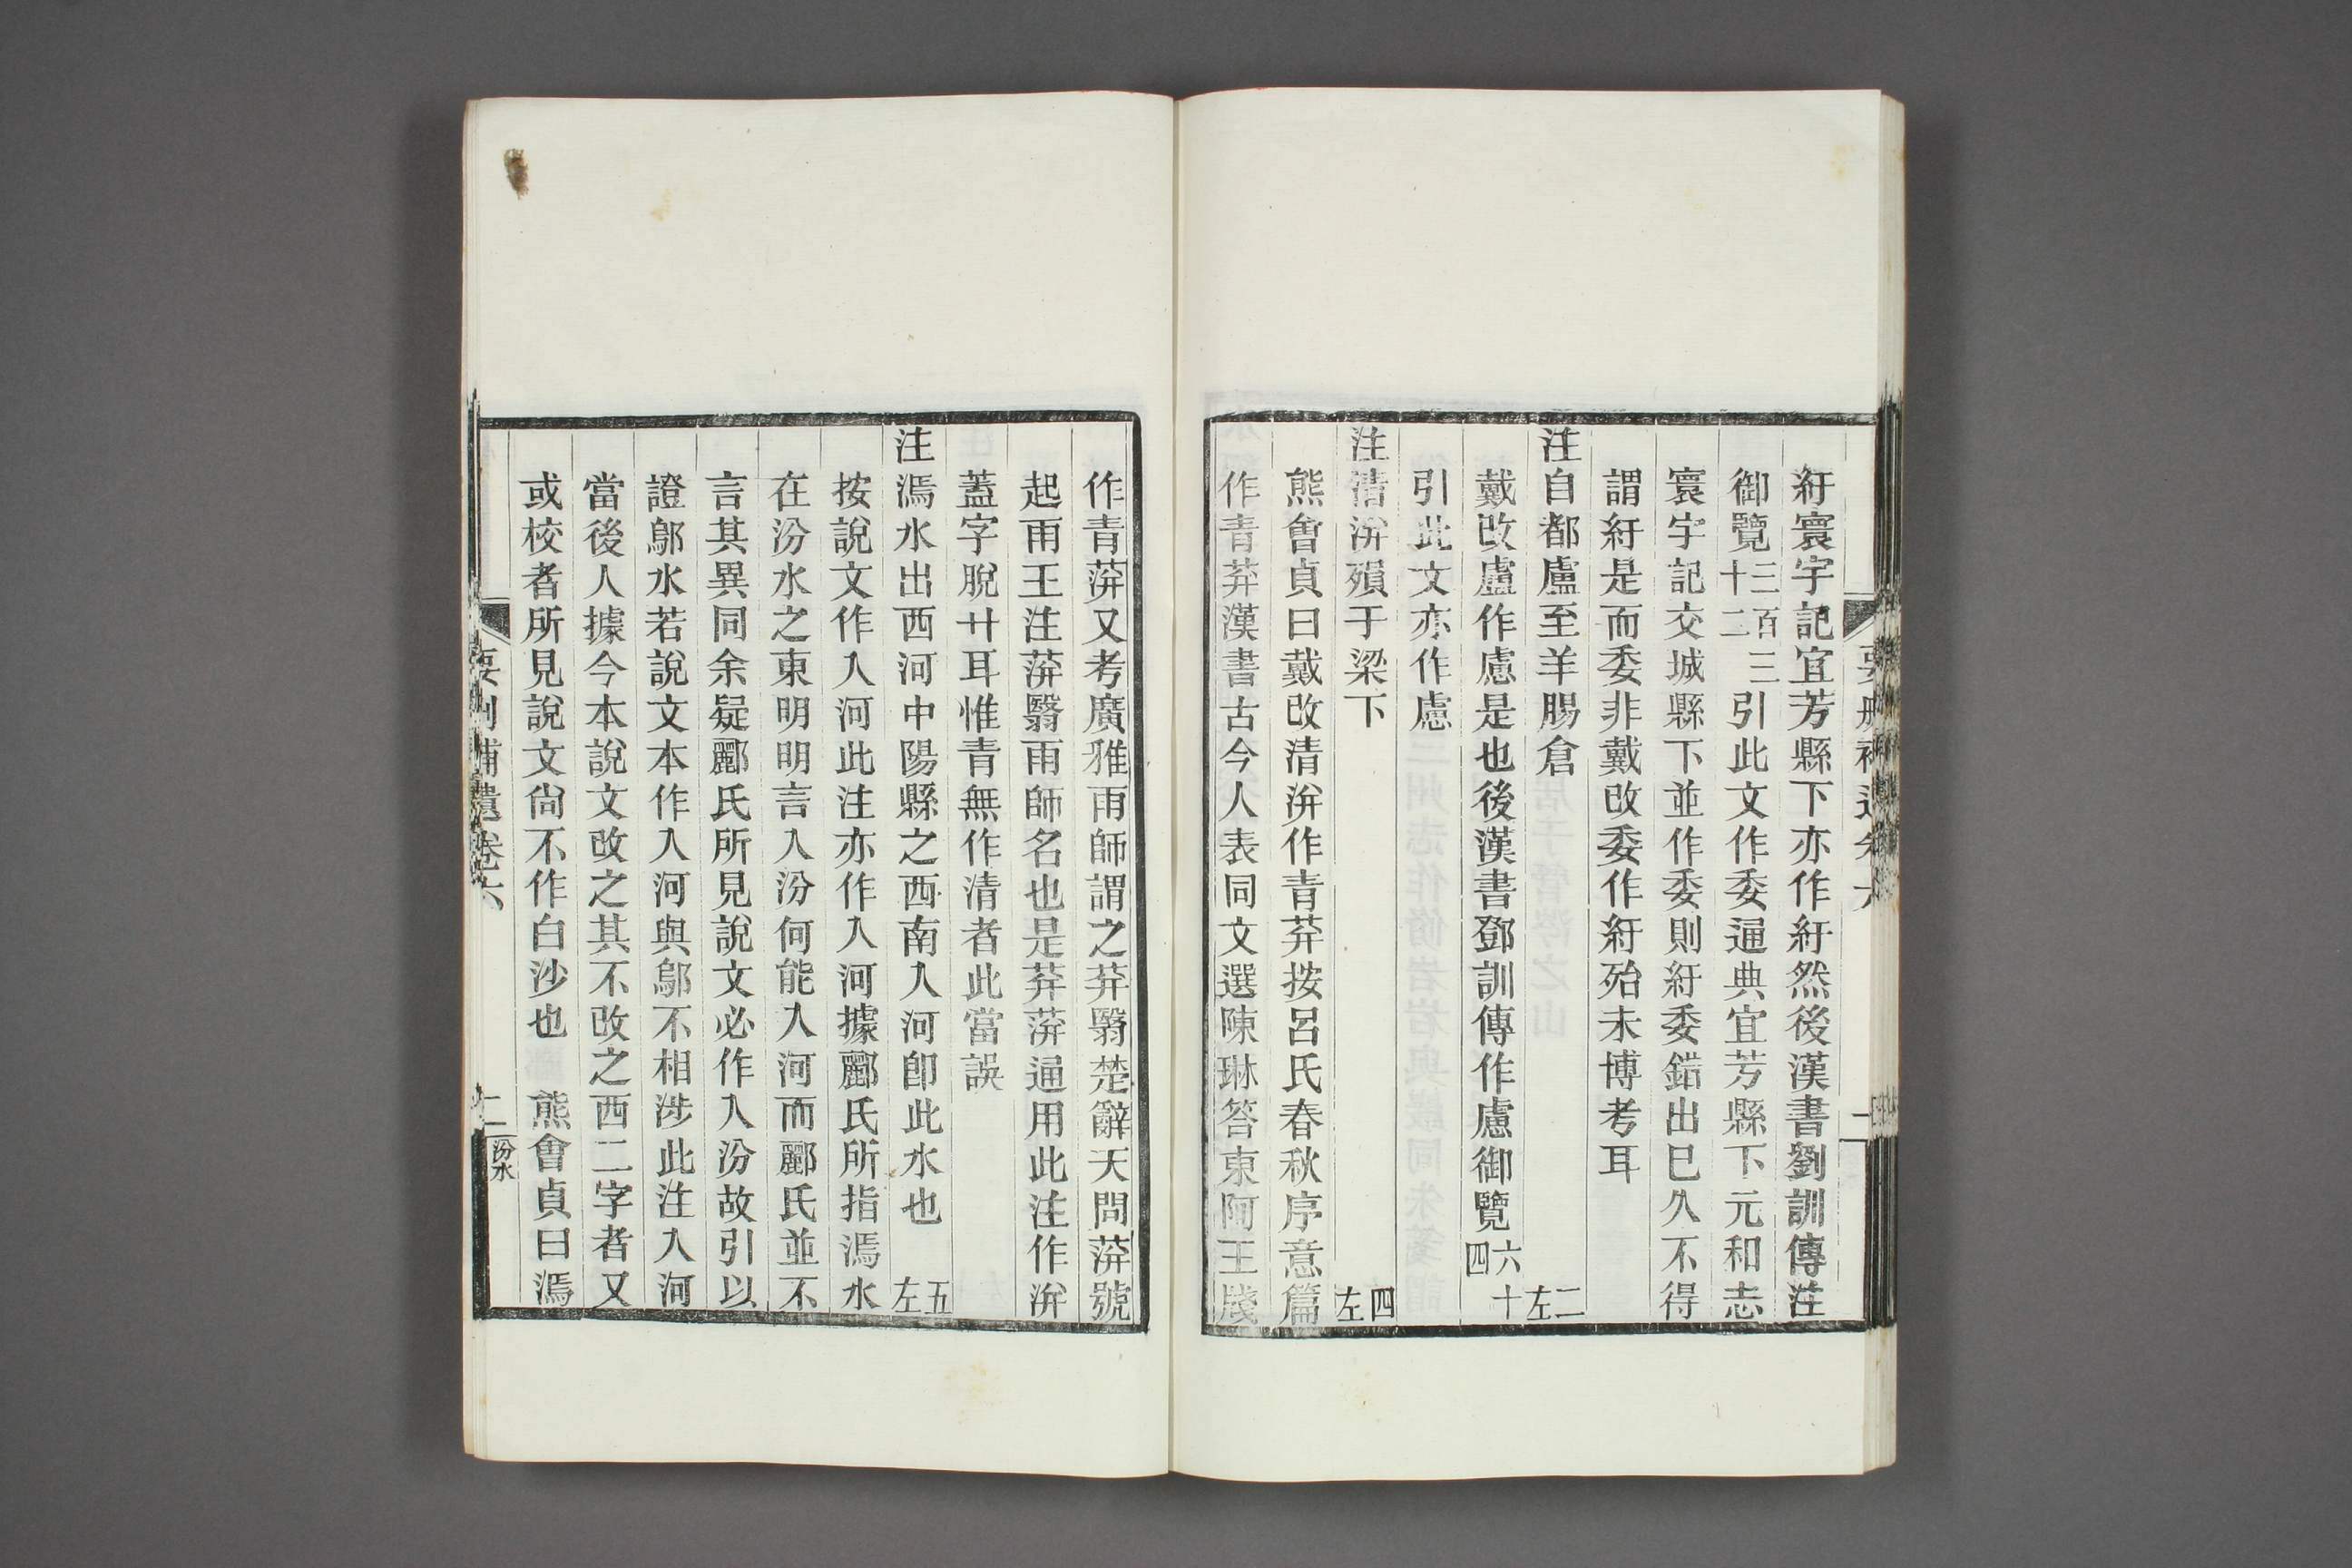 紆寰宇記宜芳縣下亦作紆然後漢書劉訓傳注
御覽三百三十二引此文作委通典宜芳縣下元和志
寰宇記交城縣下並作委則紆委錯出巳久不得
謂紆是而委非戴改委作紆殆未博考耳
注自都盧至羊腸倉二左
戴改盧作慮是也後漢書鄧訓傳作慮御覽六十四
引此文亦作慮
注清洴殞于梁下四左
熊會貞曰戴改清洴作青荓按呂氏春秋序意篇
作青荓漢書古今人表同文選陳琳答東阿王牋
作青蓱又考廣雅雨師謂之荓翳楚辭天問蓱號
起雨王注蓱翳雨師名也是荓蓱通用此注作洴
蓋字脫艹耳惟青無作清者此當誤
注漹水出西河中陽縣之西南入河卽此水也五左
按說文作入河此注亦作入河據酈氏所指漹水
在汾水之東明明言入汾何能入河而酈氏並不
言其異同余疑酈氏所見說文必作入汾故引以
證鄔水若說文本作入河與鄔不相涉此注入河
當後人據今本說文改之其不改之西二字者又
或校者所見說文尙不作白沙也　熊會貞曰漹
要刪補遺卷六
二
汾水